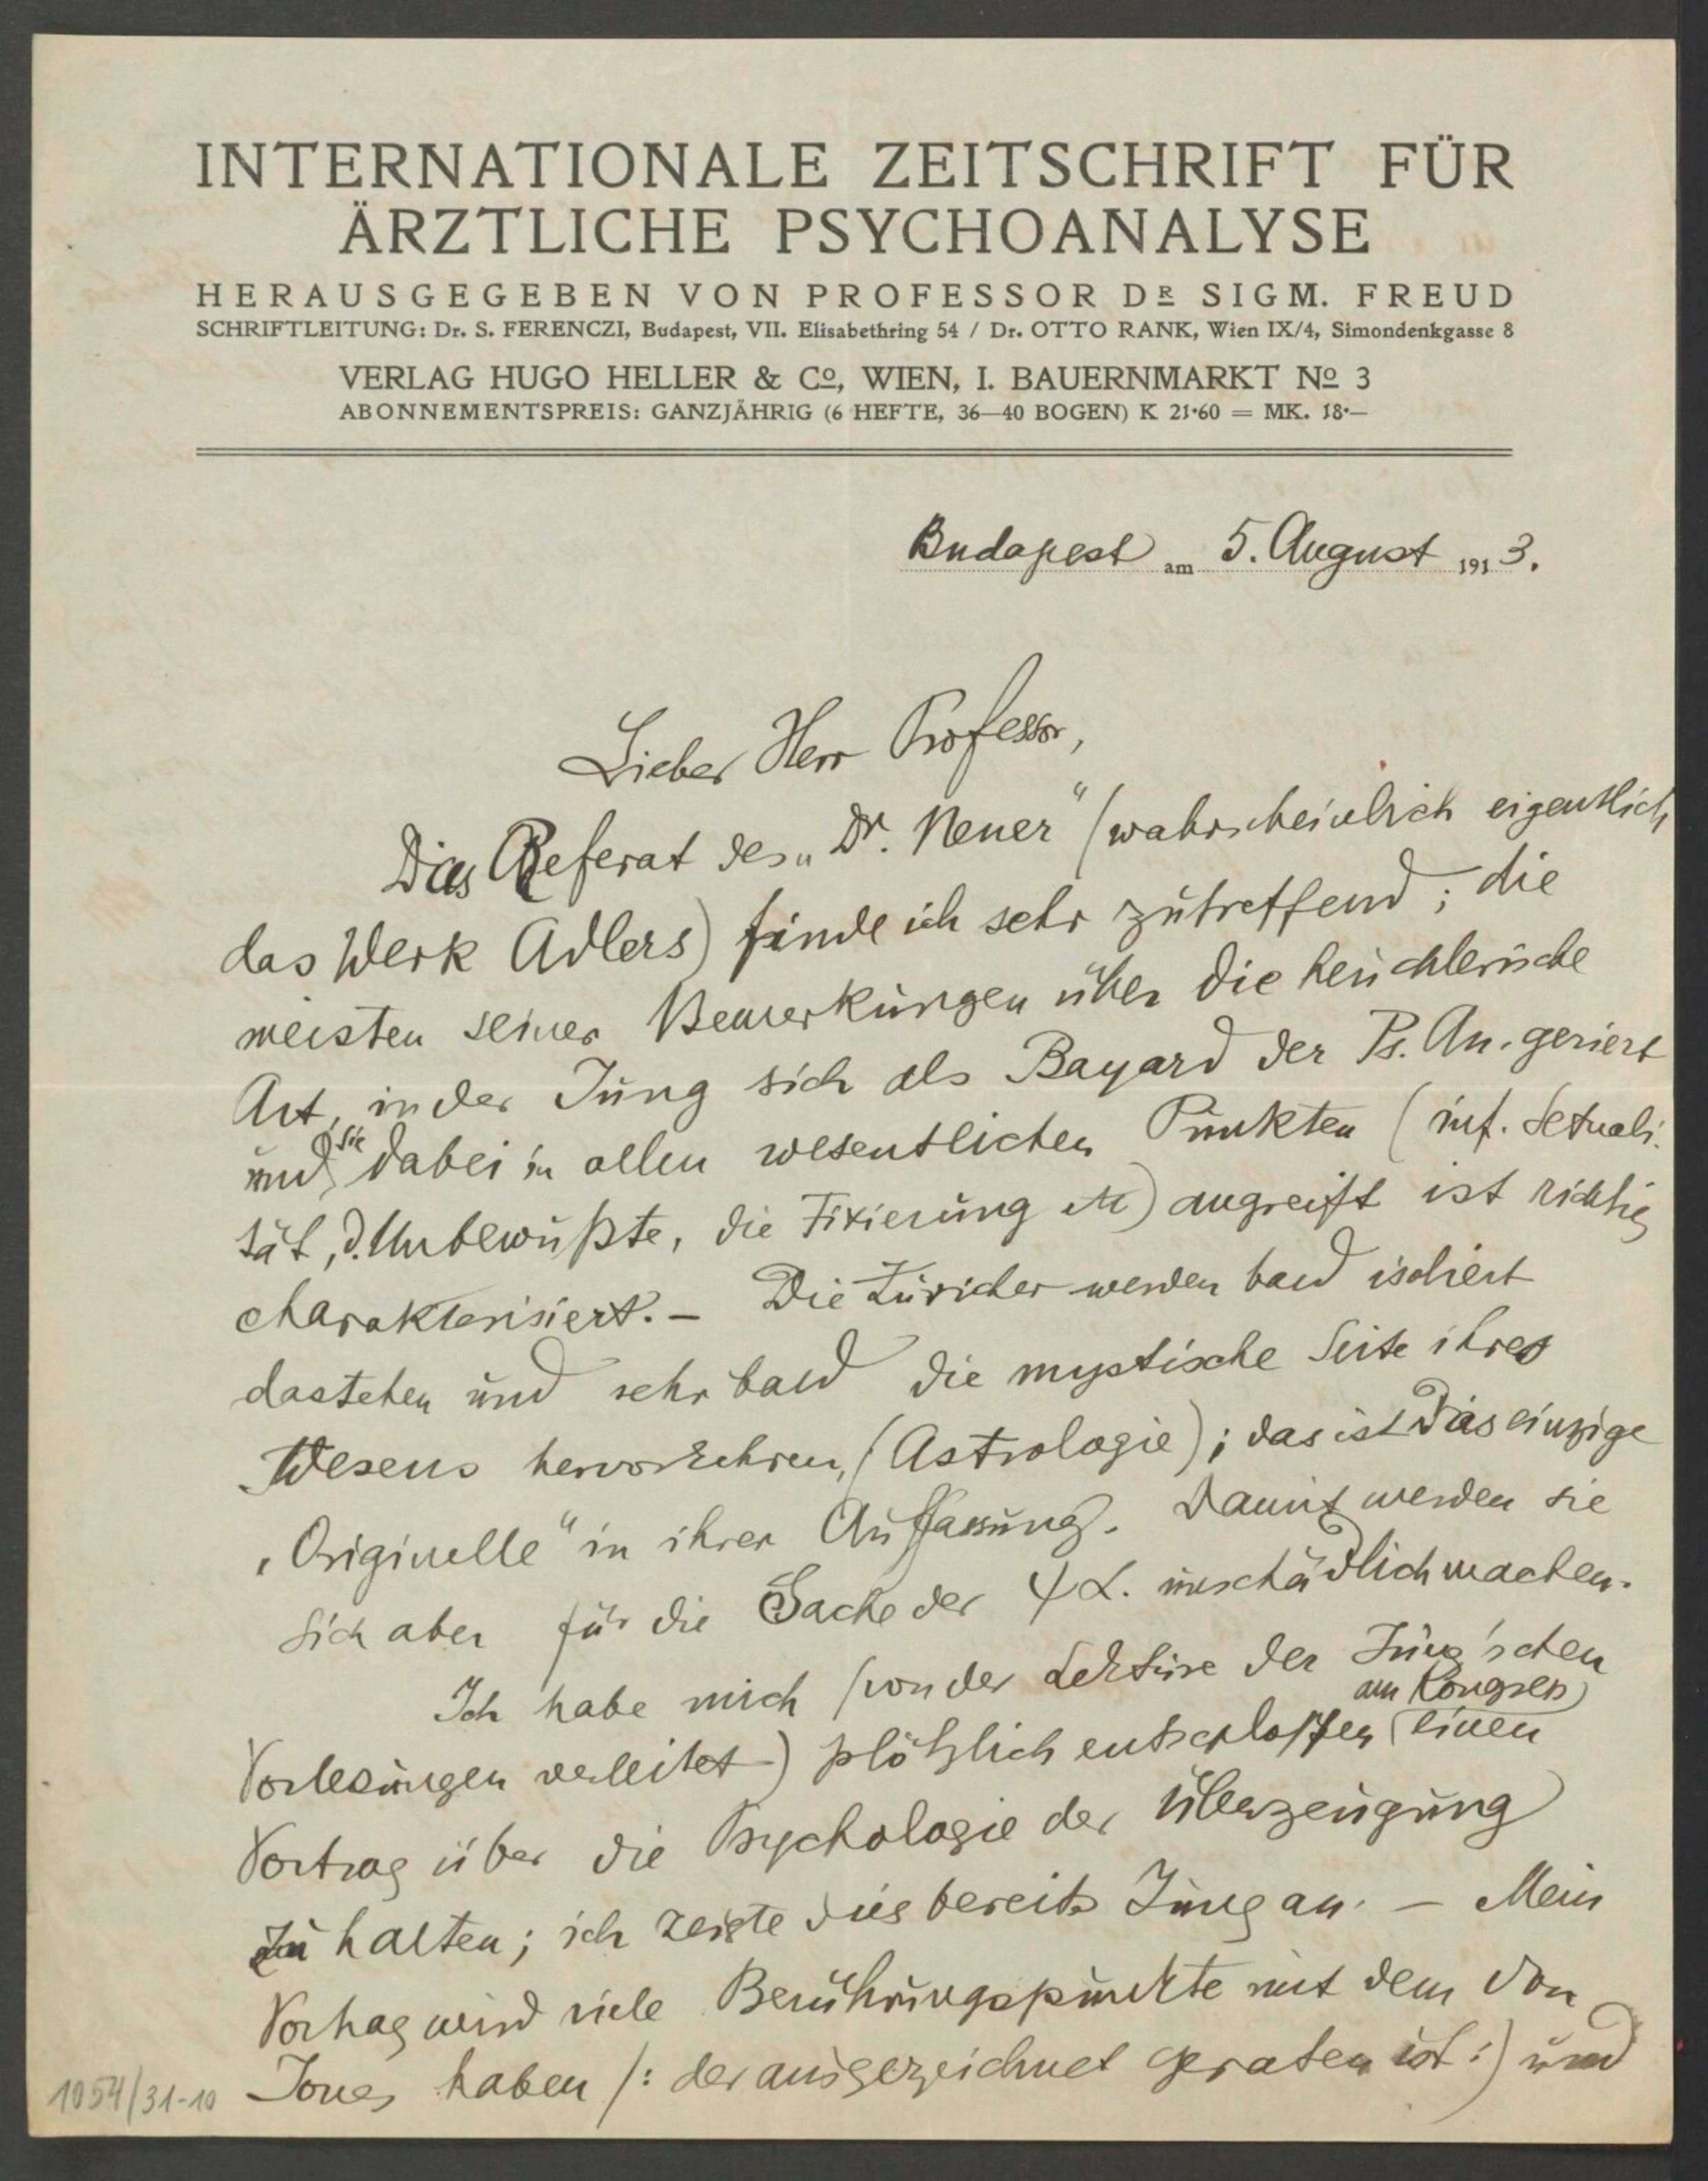 INTERNATIONALE ZEITSCHRIFT FÜR
ÄRZTLICHE PSYCHOANALYSE
HERAUSGEGEBEN VON PROFESSOR DR SIGM. FREUD
SCHRIFTLEITUNG: Dr. S. FERENCZI, Budapest, VII. Elisabethring 54 / Dr. OTTO RANK, Wien IX/4, Simondenkgasse 8
VERLAG HUGO HELLER & Co, WIEN, I. BAUERNMARKT No 3
ABONNEMENTSPREIS: GANZJÄHRIG (6 HEFTE, 36—40 BOGEN) K 21·60 = MK. 18·—
Budapest am 5. August 1913.
Lieber Herr Professor,
Das Referat des „Dr. Neuer“ (wahrscheinlich eigentlich
das Werk Adlers) finde ich sehr zutreffend; die
meisten seiner Bemerkungen über die heuchlerische
Art, in der Jung sich als Bayard der Ps. An. geriert
und sie dabei in allen wesentlichen Punkten (inf. Sexuali-
tät, d. Unbewußte, die Fixierung etc) angreift ist richtig
charakterisiert. – Die Züricher werden bald isoliert
dastehen und sehr bald die mystische Seite ihres
Wesens hervorkehren, (Astrologie); das ist das einzige
„Originelle“ in ihrer Auffassung. Damit werden sie
sich aber für die Sache der ΨΑ. unschädlich machen.
Ich habe mich (von der Lektüre der Jung'schen
am Kongress
Vorlesungen verleitet) plötzlich entschlossen einen
Vortrag über die Psychologie der Überzeugung
zu halten; ich zeigte dies bereits Jung an. – Mein
Vortrag wird viele Berührungspunkte mit dem von
Jones haben /: der ausgezeichnet geraten ist :/ und
1054/31-10